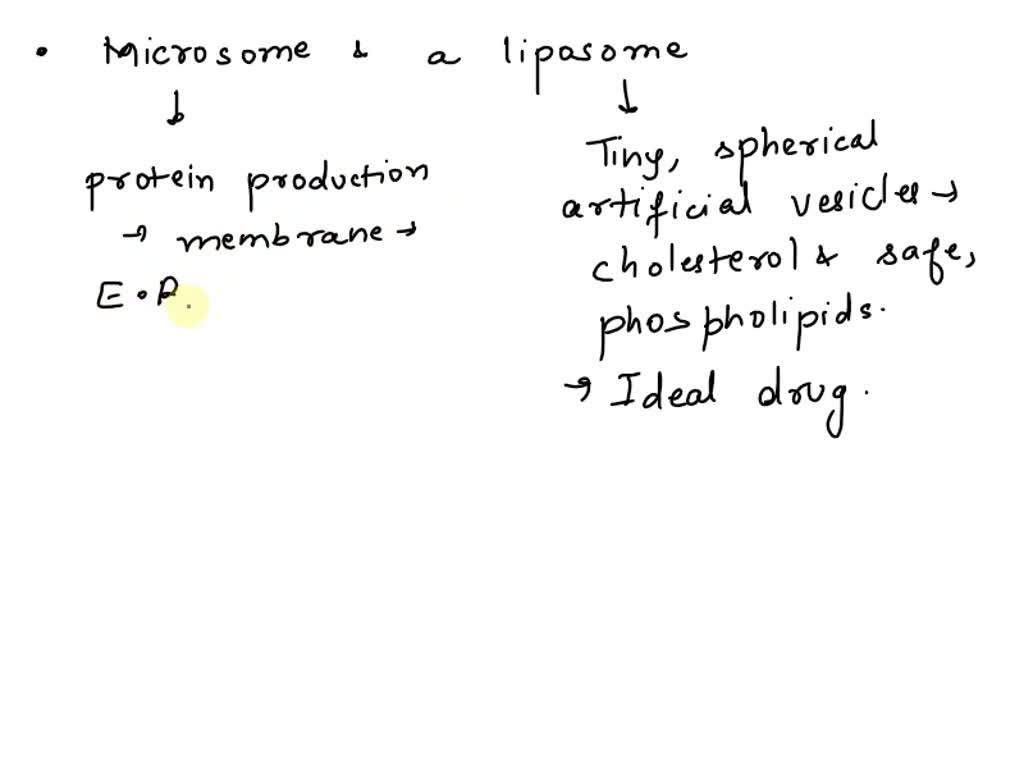 • Microsome & a liposome
↓
protein production
→ membrane →
E.R.
↓
Tiny, spherical
artificial vesicles →
cholesterol & safe,
phospholipids.
→ Ideal drug.